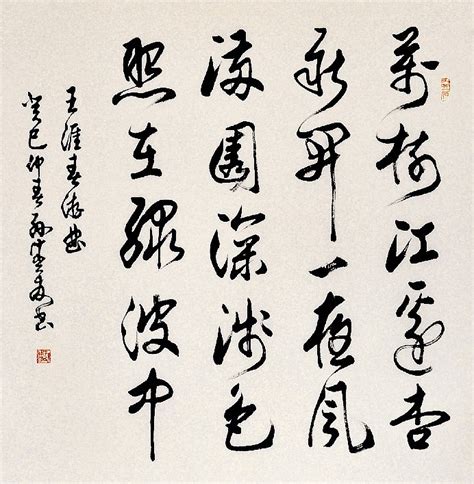 萬樹江邊杏
新開一夜風
滿園深淺色
照在綠波中
王涯春游曲
癸巳仲春孫書